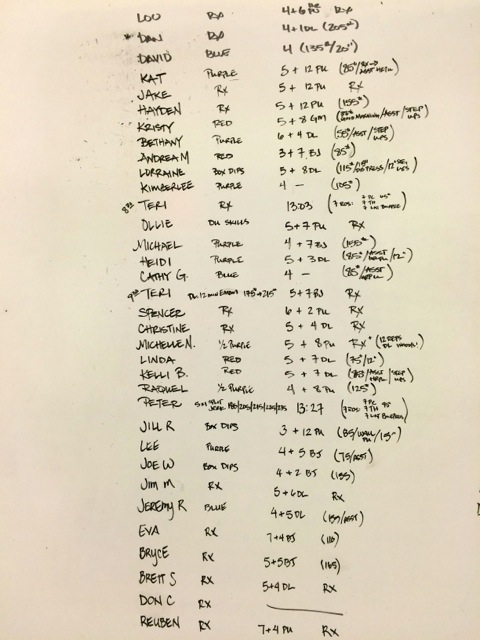 LOU RX 4+6 PU RX
* DAN RX 4+1 DL (205#)
DAVID BLUE 4 (135#/20")
KAT PURPLE 5 + 12 PU (85#/
JAKE RX 5 + 12 PU RX
HAYDEN RX 5 + 12 PU (155#)
KRISTY RED 5 + 8 GM /ASST/STEP UPS)
BETHANY PURPLE 6 + 4 DL (55#/ASST/STEP UPS)
ANDREA M RED 3 + 7 BJ (85#)
LORRAINE BOX DIPS 5 + 8 DL (115#/
KIMBERLEE PURPLE 4 - (105#)
TERI RX 13:03
OLLIE DU SKILLS 5 + 7 PU RX
MICHAEL PURPLE 4 + 7 BJ (155#)
HEIDI PURPLE 5 + 3 DL (85#/ASST /12"
CATHY G. BLUE 4 - (85#/ASST
TERI DL: 12 MIN EMOM 175#→215# 5+7 BJ RX
SPENCER RX 6 + 2 PU RX
CHRISTINE RX 5 + 4 DL RX
MICHELLE N. 1/2 PURPLE 5 + 8 PU RX* (12 REPS DL
LINDA RED 5 + 7 DL (75/12")
KELLI B. RED 5 + 7 DL /ASST/STEP UPS)
RAQUEL 1/2 PURPLE 4 + 8 PU (125#)
PETER 13:27
JILL R BOX DIPS 3 + 12 PU
LEE PURPLE 4 + 5 BJ (75/ASST)
JOE W BOX DIPS 4 + 2 BJ (155)
JIM M RX 5+6 DL RX
JEREMY R BLUE 4+5 DL (155/ASST)
EVA RX 7+4 BJ (110)
BRYCE RX 5+5 BJ (165)
BRETT S RX 5+4 DL RX
DON C RX
REUBEN RX 7+4 PU RX